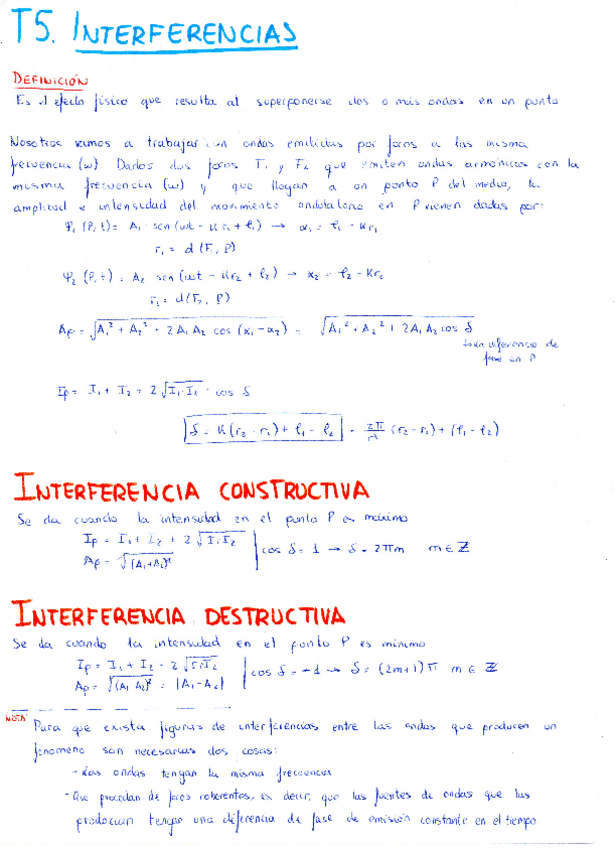 T5. INTERFERENCIAS
DEFINICIÓN
Es el efecto físico que resulta al superponerse dos o más ondas en un punto
Nosotros vamos a trabajar con ondas emitidas por focos a la misma
frecuencia (ω). Dados dos focos F₁ y F₂ que emiten ondas armónicas con la
misma frecuencia (ω) y que llegan a un punto P del medio, la
amplitud e intensidad del movimiento ondulatorio en P vienen dadas por:
Ψ₁ (P, t) = A₁ · sen (ωt - Kr₁ + φ₁) → α₁ = φ₁ - Kr₁
r₁ = d (F₁, P)
Ψ₂ (P, t) = A₂ sen (ωt - Kr₂ + φ₂) → α₂ = φ₂ - Kr₂
r₂ = d (F₂, P)
Aₚ = √(A₁² + A₂² + 2A₁A₂ cos (α₁ - α₂)) = √(A₁² + A₂² + 2A₁A₂ cos δ)
diferencia de
fase en P
Iₚ = I₁ + I₂ + 2√(I₁·I₂) · cos δ
δ = K(r₂ - r₁) + φ₁ - φ₂ = 2π/λ (r₂ - r₁) + (φ₁ - φ₂)
INTERFERENCIA CONSTRUCTIVA
Se da cuando la intensidad en el punto P es máximo
Iₚ = I₁ + I₂ + 2√(I₁I₂)
Aₚ = √((A₁+A₂)²) | cos δ = 1 → δ = 2πm m ∈ ℤ
INTERFERENCIA DESTRUCTIVA
Se da cuando la intensidad en el punto P es mínimo
Iₚ = I₁ + I₂ - 2√(I₁I₂)
Aₚ = √((A₁-A₂)²) = |A₁-A₂| | cos δ = -1 → δ = (2m+1)π m ∈ ℤ
NOTA Para que exista figuras de interferencias entre las ondas que producen un
fenómeno son necesarias dos cosas:
- Las ondas tengan la misma frecuencia
- Que procedan de focos coherentes, es decir, que las fuentes de ondas que las
produzcan tengan una diferencia de fase de emisión constante en el tiempo